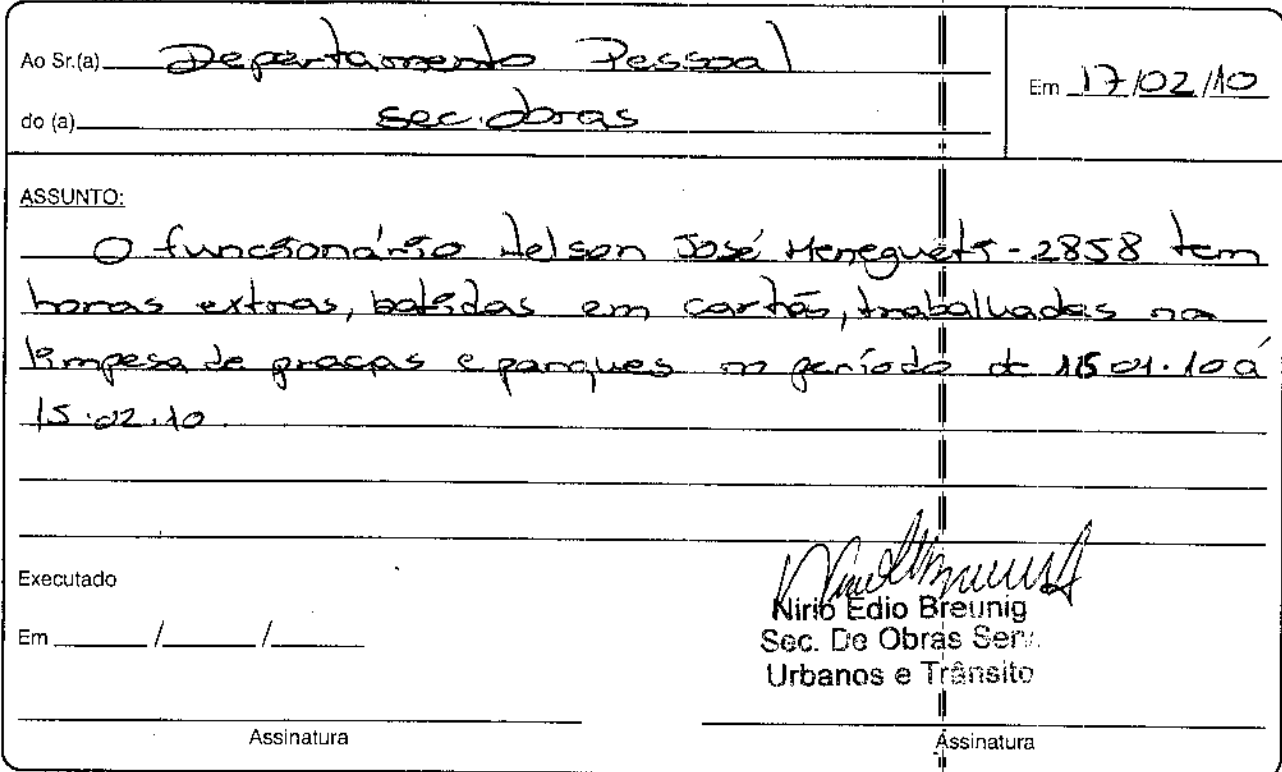 Ao Sr.(a) Departamento Pessoal
Em 17/02/10
do (a) Sec. Obras
ASSUNTO:
O funcionário Nelson José Meneguets - 2858 tem
horas extras, batidas em cartão, trabalhadas na
limpesa de praças e parques no período de 15.01.10 á
15.02.10.
Executado
Em / /
Nirio Edio Breunig
Sec. De Obras Serv.
Urbanos e Trânsito
Assinatura
Assinatura